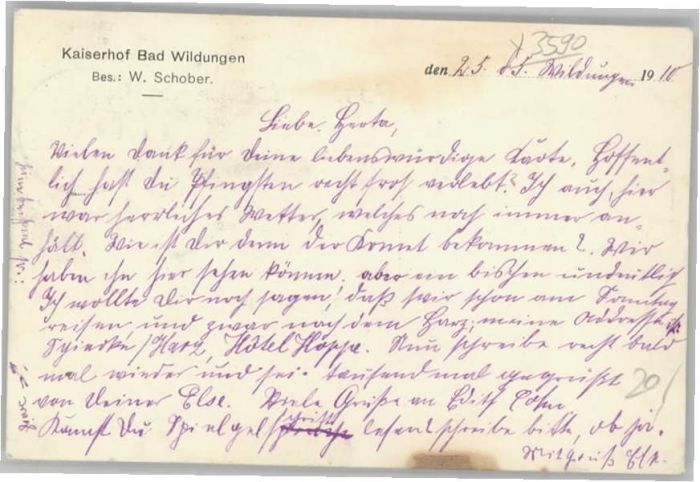 Kaiserhof Bad Wildungen
Bes.: W. Schober.
3590
den 25. 5. Wildungen 1910
Liebe Herta,
Vielen Dank für Deine liebenswürdige Karte. Hoffent-
lich hast Du Pfingsten recht froh verlebt? Ich auch, hier
war herrliches Wetter, welches noch immer an-
hält. Wie ist Dir denn der Komet bekommen? Wir
haben ihn hier sehen können, aber ein bischen undeutlich
Ich wollte Dir noch sagen, daß wir schon am Sonntag
reisen und zwar nach dem Harz; meine Addresse ist
Schierke/Harz, Hôtel Hoppe. Nun schreibe recht bald
mal wieder und sei tausendmal gegrüßt
von Deiner Else. Viele Grüße an Edith Cohn.
20
Kannst Du Spiegelschrift lesen? schreibe bitte, ob ja.
Mit Gruß Else.